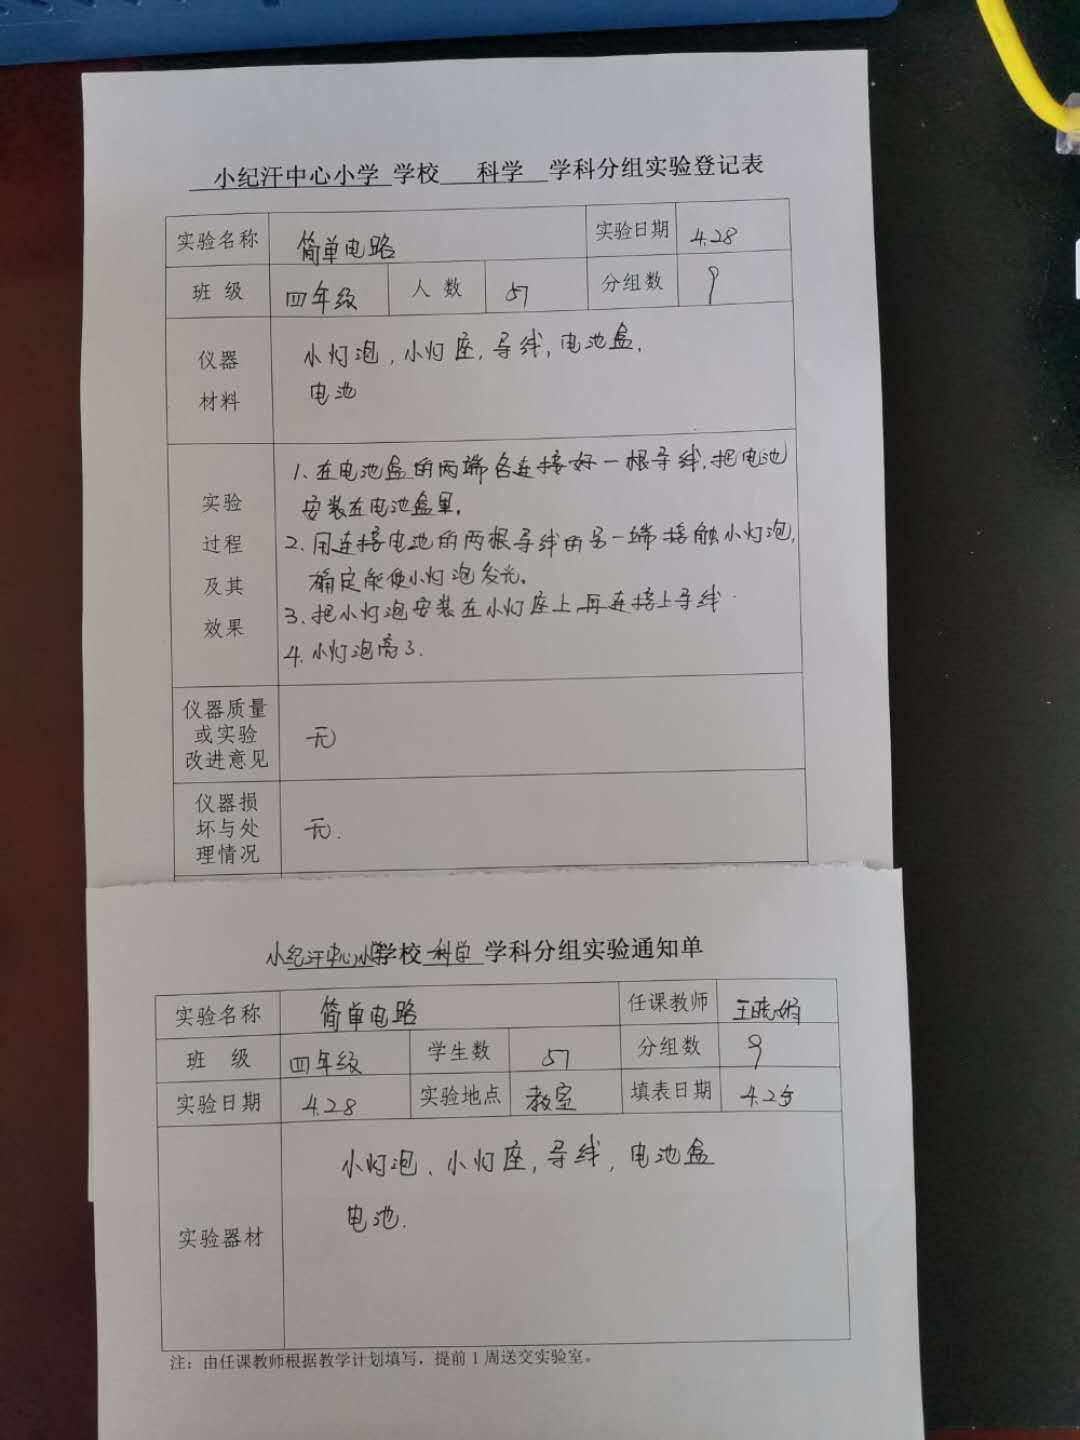 小纪汗中心小学 学校 科学 学科分组实验登记表
实验名称 简单电路 实验日期 4.28
班 级 四年级 人 数 51 分组数 9
仪器
材料
小灯泡,小灯座,导线,电池盒,
电池
实验
过程
及其
效果
1.在电池盒的两端各连接好一根导线,把电池
安装在电池盒里。
2.用连接电池的两根导线的另一端接触小灯泡,
确定能使小灯泡发光。
3.把小灯泡安装在小灯座上,再连接上导线.
4.小灯泡亮了.
仪器质量
或实验
改进意见
无
仪器损
坏与处
理情况
无.
小纪汗中心小学学校 科学 学科分组实验通知单
实验名称 简单电路 任课教师 王晓娟
班 级 四年级 学生数 51 分组数 9
实验日期 4.28 实验地点 教室 填表日期 4.25
实验器材
小灯泡、小灯座,导线,电池盒
电池.
注：由任课教师根据教学计划填写，提前1周送交实验室。